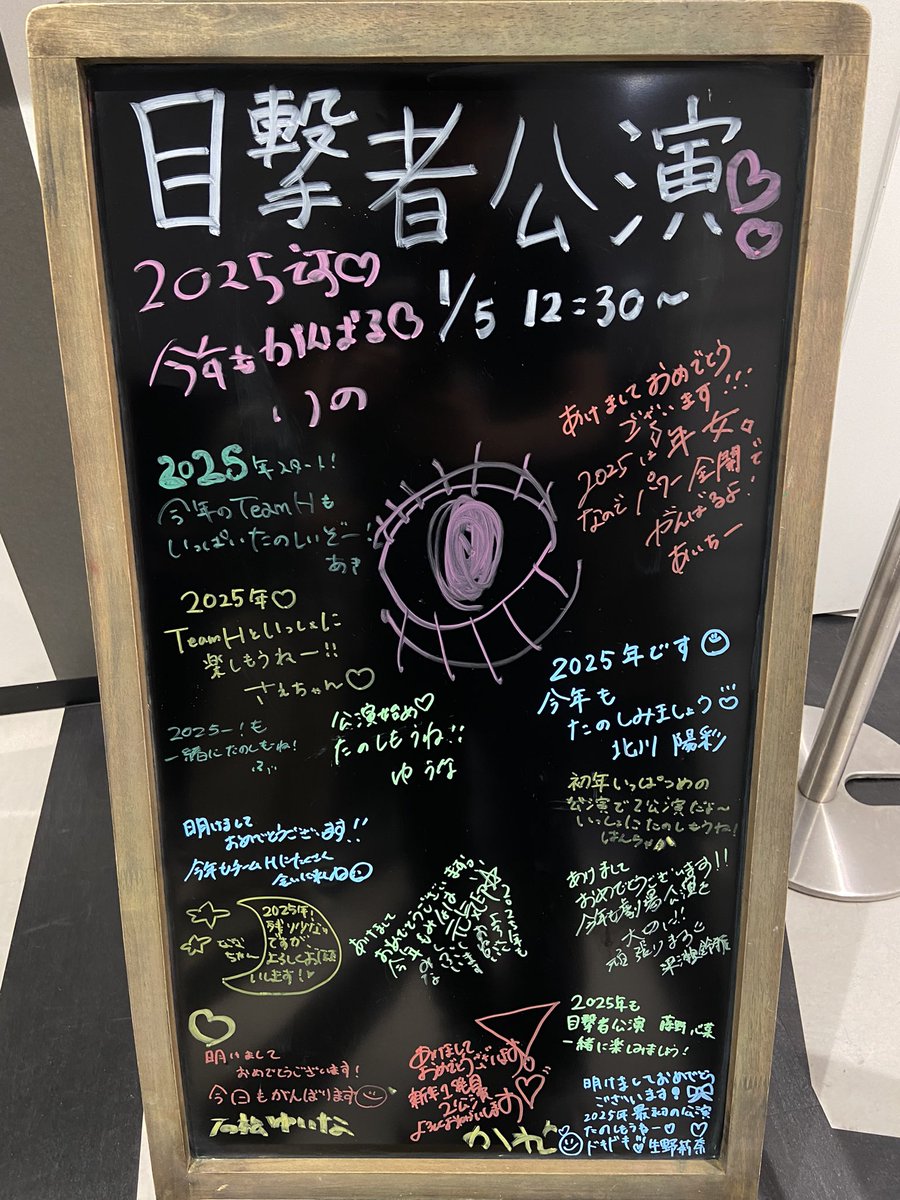 目撃者公演
1/5 12:30～
2025だ
今年もがんばる
いの
あけましておめでとう
ございます!!!
2025は年女
なのでパワー全開で
がんばるよ!
あいちー
2025年スタート!
今年のTeamHも
いっぱいたのしいぞー!
あき
2025年
TeamHといっしょに
楽しもうねー!!
さえちゃん
2025年です
今年も
たのしみましょう
北川 陽彩
2025ー!も
一緒にたのしもね!
公演始め
たのしもうね!!
ゆうな
初年いっぱつめの
公演で2公演だよ～
いっしょにたのしもうね!
明けまして
おめでとうございます!!
今年もチームHにたくさん
会いに来んね
2025年!
残り少ない
ですが、
よろしくお願
いします!
ななちゃん
あけまして
おめでとうございます
今年も
元気
あけまして
おめでとうございます!!
今年も劇場公演を
大切に!!
頑張ります
2025年も
目撃者公演
一緒に楽しみましょう!
明けまして
おめでとうございます!
今日もがんばります
石松ゆいな
あけまして
おめでとうございます
新年1発目
2公演
よろしくおねがいします
かれん
明けましておめでとう
ございます!
2025年最初の公演
たのしもうねー
ドキドキ 生野莉奈